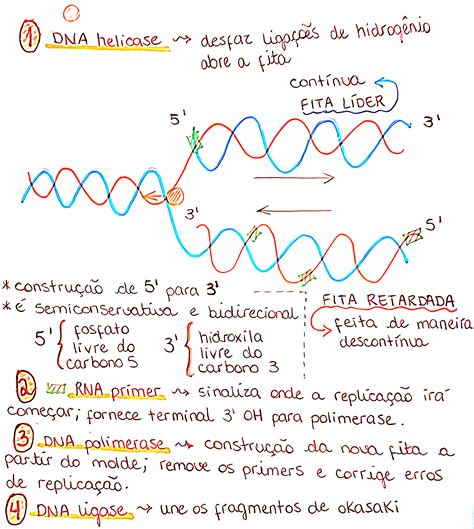 1 DNA helicase ⤳ desfaz ligações de hidrogênio
abre a fita
contínua
FITA LÍDER
5'
3'
3'
5'
* construção de 5' para 3'
* é semiconservativa e bidirecional
FITA RETARDADA
feita de maneira
descontínua
5' { fosfato
livre do
carbono 5
3' { hidroxila
livre do
carbono 3
2 RNA primer ⤳ sinaliza onde a replicação irá
começar; fornece terminal 3' OH para polimerase.
3 DNA polimerase ⤳ construção da nova fita a
partir do molde; remove os primers e corrige erros
de replicação.
4 DNA ligase ⤳ une os fragmentos de okasaki